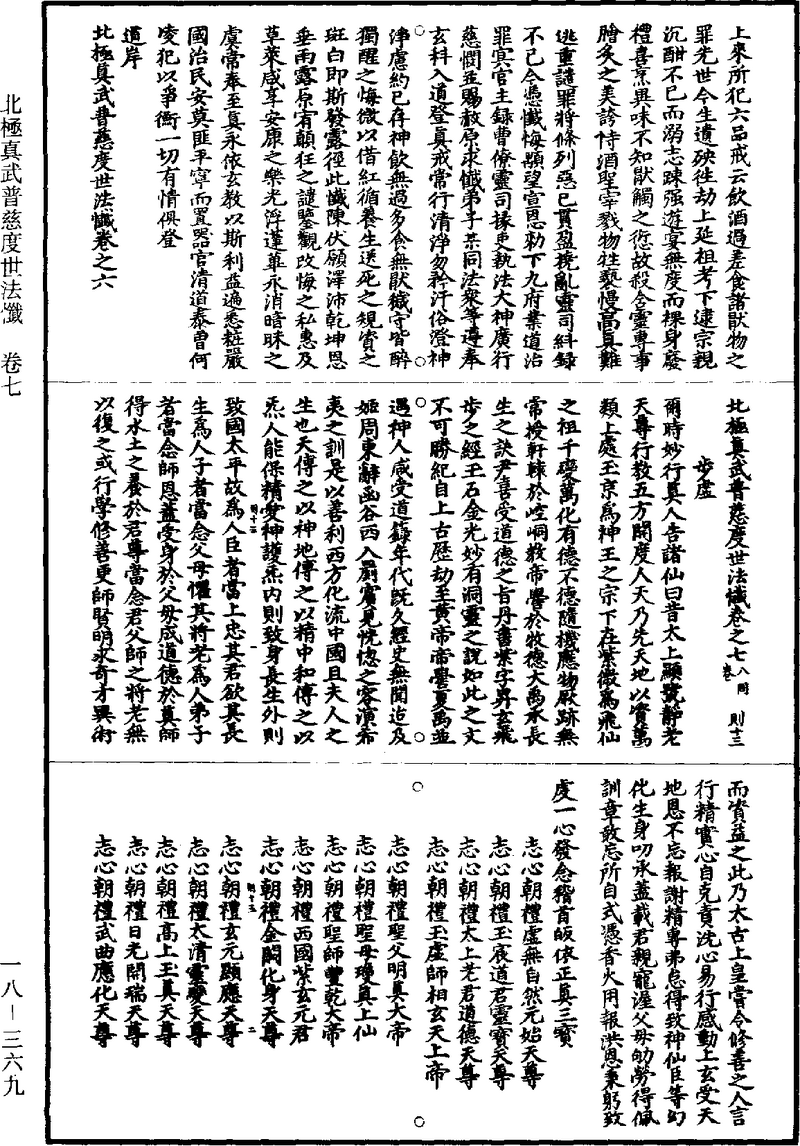 上來所犯六品戒云飲酒過差食諸獸物之
罪先世今生遺殃徃劫上延祖考下逮宗親
沉酣不已而溺志踈强遊宴無度而裸身廢
禮喜烹異味不知猒觸之愆故殺含靈專事
膾炙之美誇恃酒聖宰戮物牲褻慢高真難
逃重譴罪將條列惡已貫盈撓亂靈司糾録
不已今憑懺悔顒望宣恩勑下九府業道治
罪冥官主録曹僚靈司掾吏執法大神廣行
慈憫並賜赦原求懺弟子某同法衆等遵奉
玄科入道登真戒常行清淨勿矜汙俗澄神
淨慮約己存神飲無過多食無猒穢守皆醉
獨醒之悔微以借紅循養生送死之規資之
斑白即斯發露徑此懺陳伏願澤沛乾坤恩
垂雨露原宥顛狂之譴鑒觀改悔之私惠及
草萊咸享安康之樂光浮蓬蓽永消暗昧之
虞常奉至真永依玄教以斯利益遍悉粧嚴
國治民安莫匪平寧而置器官清道泰曽何
凌犯以爭衝一切有情俱登
道岸
北極真武普慈度世法懺卷之六
北極真武普慈度世法懺卷之七 八同卷 則十三
步虛
爾時妙行真人告諸仙曰昔太上顯號靜老
天尊行教五方開度人天乃先天地以資萬
類上處玉京爲神王之宗下在紫微爲飛仙
之祖千變萬化有德不德隨機應物厥跡無
常授軒轅於崆峒教帝嚳於牧德大禹承長
生之訣尹喜受道德之旨丹書紫字昇玄飛
步之經玉石金光妙有洞靈之說如此之文
不可勝紀自上古歷劫至黄帝帝嚳夏禹並
遇神人咸受道籙年代旣久經史無聞迨及
姬周東辭函谷西入罽賓見恍惚之零演希
夷之訓是以善利西方化流中國且夫人之
生也天傳之以神地傳之以精中和傳之以
炁人能保精愛神護炁内則致身長生外則
致國太平故爲人臣者當上忠其君欲其長
生爲人子者當念父母懼其將老爲人弟子
者當念師恩蓋受身於父母成道德於真師
得水土之養於君尊當念君父師之將老無
以復之或行學修善更師賢明求奇才異術
而資益之此乃太古上皇嘗令修善之人言
行精實心自克責洗心易行感動上玄受天
地恩不忘報謝精專弗怠得致神仙臣等幻
化生身叨承蓋載君親寵渥父母劬勞得佩
訓章敢忘所自式憑香火用報洪恩秉躬致
虔一心發念稽首皈依正真三寶
志心朝禮虛無自然元始天尊
志心朝禮玉宸道君靈寶天尊
志心朝禮太上老君道德天尊
志心朝禮玉虛師相玄天上帝
志心朝禮聖父明真大帝
志心朝禮聖母瓊真上仙
志心朝禮聖師豐乾大帝
志心朝禮西國紫玄元君
志心朝禮金闕化身天尊
志心朝禮玄元顯應天尊
志心朝禮太清靈變天尊
志心朝禮高上玉真天尊
志心朝禮日光開瑞天尊
志心朝禮武曲應化天尊
北極真武普慈度世法懺 卷七
一八－三六九